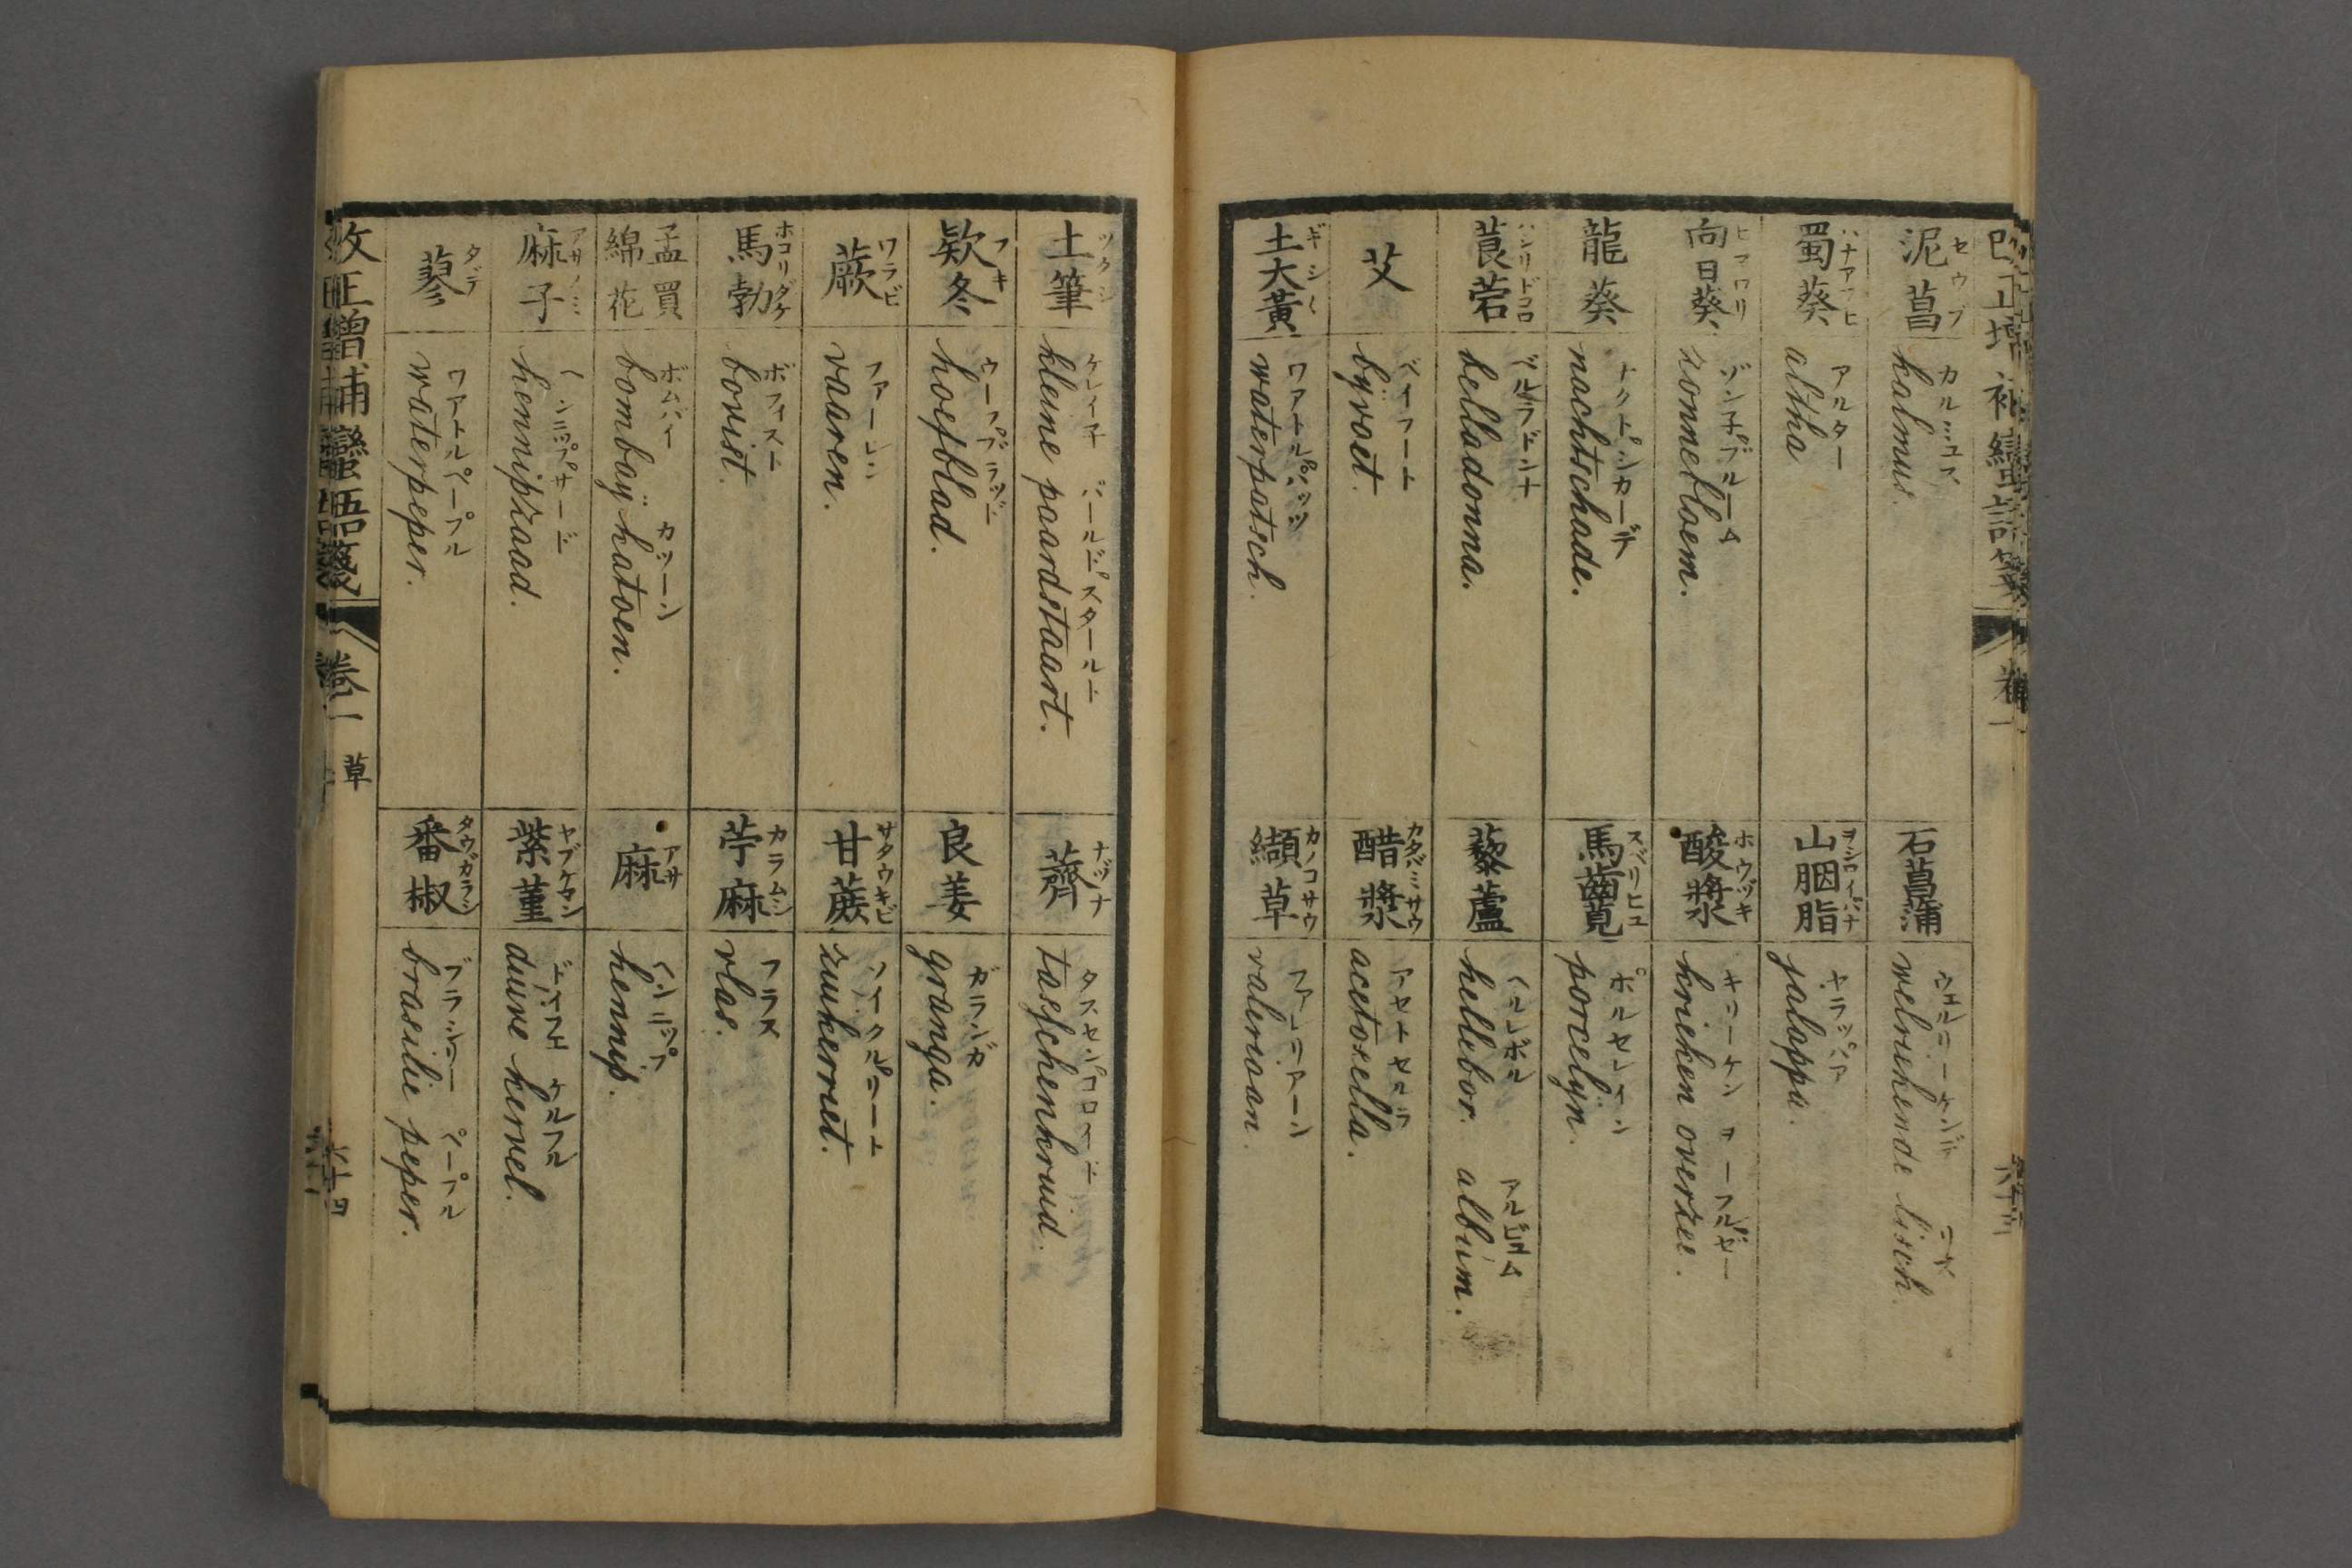 改正増補蠻語箋
卷一
六十三
セウブ
泥菖
カルミュス
kalmus.
石菖蒲
ウェルリーケンデ リス
welriekende lisch.
ハナアフヒ
蜀葵
アルター
althea
ヲシロイバナ
山胭脂
ヤラッパア
jalappa.
ヒマワリ
向日葵
ゾンネブルーム
zonnebloem.
ホウヅキ
酸漿
キリーケン ヲーフルゼー
krieken overzee.
龍葵
ナクトシカーデ
nachtschade.
スベリヒユ
馬齒莧
ポルセレイン
porcelÿn.
ハシリドコロ
莨菪
ベルラドンナ
belladonna.
藜蘆
ヘルレボル アルビュム
hellebor. album.
艾
ベイフート
bÿvoet.
カタバミサウ
醋漿
アセトセルラ
acetosella.
ギシ〱
土大黃
ワアトルパッツ
waterpatsch.
カノコサウ
纈草
ファレリアーン
valeriaan.
ツクシ
土筆
ケレイネ パールドスタールト
kleine paardstaart.
ナヅナ
薺
タスセンコロイト
tasschenkruid.
フキ
欵冬
ウーフブラット
hoefblad.
良姜
ガランガ
granga.
ワラビ
蕨
ファーレン
vaaren.
サタウキビ
甘蔗
ソイクルリート
zuikerriet.
ホコリダケ
馬勃
ボフィスト
bovist.
カラムシ
苧麻
フラス
vlas.
孟買綿花
ボムバイ カツーン
bombaÿ katoen.
アサ
麻
ヘンニップ
hennip.
アサノミ
麻子
ヘンニップサード
hennipzaad.
ヤブケマン
紫菫
ドイフェ ケルフル
duive kervel.
タデ
蓼
ワアトルペープル
waterpeper.
タウガラシ
番椒
ブラシリー ペープル
brasilie peper.
改正增補蠻語箋
卷一 草
六十四